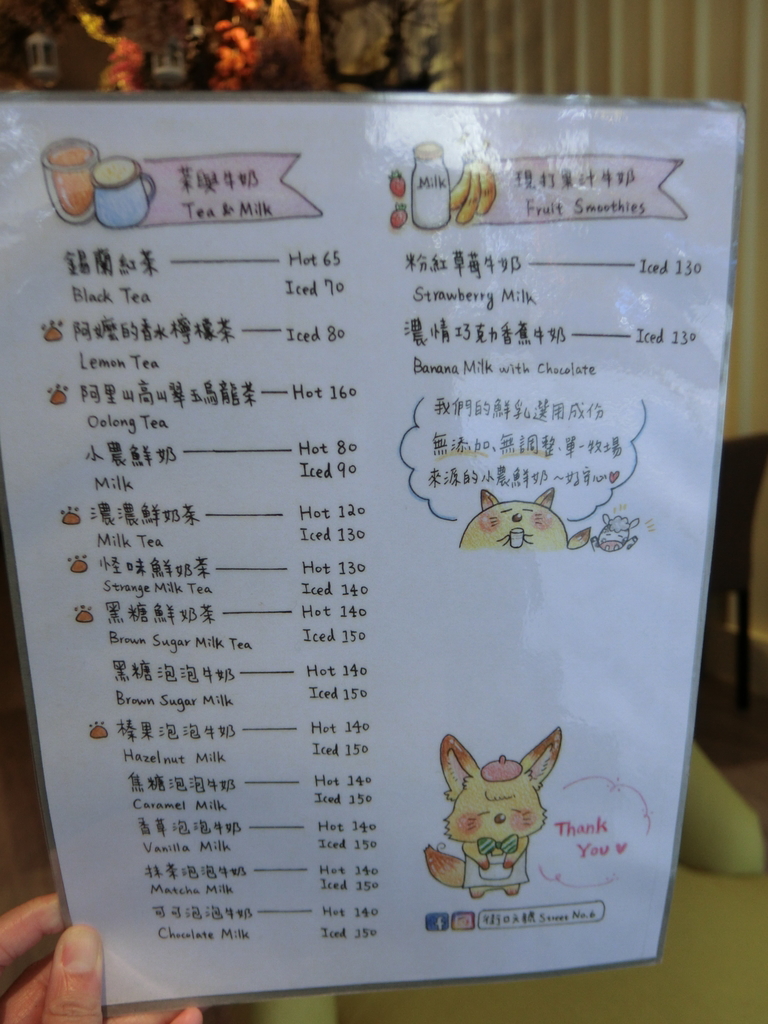 茶與牛奶
Tea & Milk
錫蘭紅茶 Hot 65
Black Tea Iced 70
阿嬤的香水檸檬茶 Iced 80
Lemon Tea
阿里山高山翠玉烏龍茶 Hot 160
Oolong Tea
小農鮮奶 Hot 80
Milk Iced 90
濃濃鮮奶茶 Hot 120
Milk Tea Iced 130
怪味鮮奶茶 Hot 130
Strange Milk Tea Iced 140
黑糖鮮奶茶 Hot 140
Brown Sugar Milk Tea Iced 150
黑糖泡泡牛奶 Hot 140
Brown Sugar Milk Iced 150
榛果泡泡牛奶 Hot 140
Hazelnut Milk Iced 150
焦糖泡泡牛奶 Hot 140
Caramel Milk Iced 150
香草泡泡牛奶 Hot 140
Vanilla Milk Iced 150
抹茶泡泡牛奶 Hot 140
Matcha Milk Iced 150
可可泡泡牛奶 Hot 140
Chocolate Milk Iced 150
Milk
現打果汁牛奶
Fruit Smoothies
粉紅草莓牛奶 Iced 130
Strawberry Milk
濃情巧克力香蕉牛奶 Iced 130
Banana Milk with Chocolate
我們的鮮乳選用成份
無添加、無調整、單一牧場
來源的小農鮮奶~好安心
Thank
You
街口六號 Street No.6